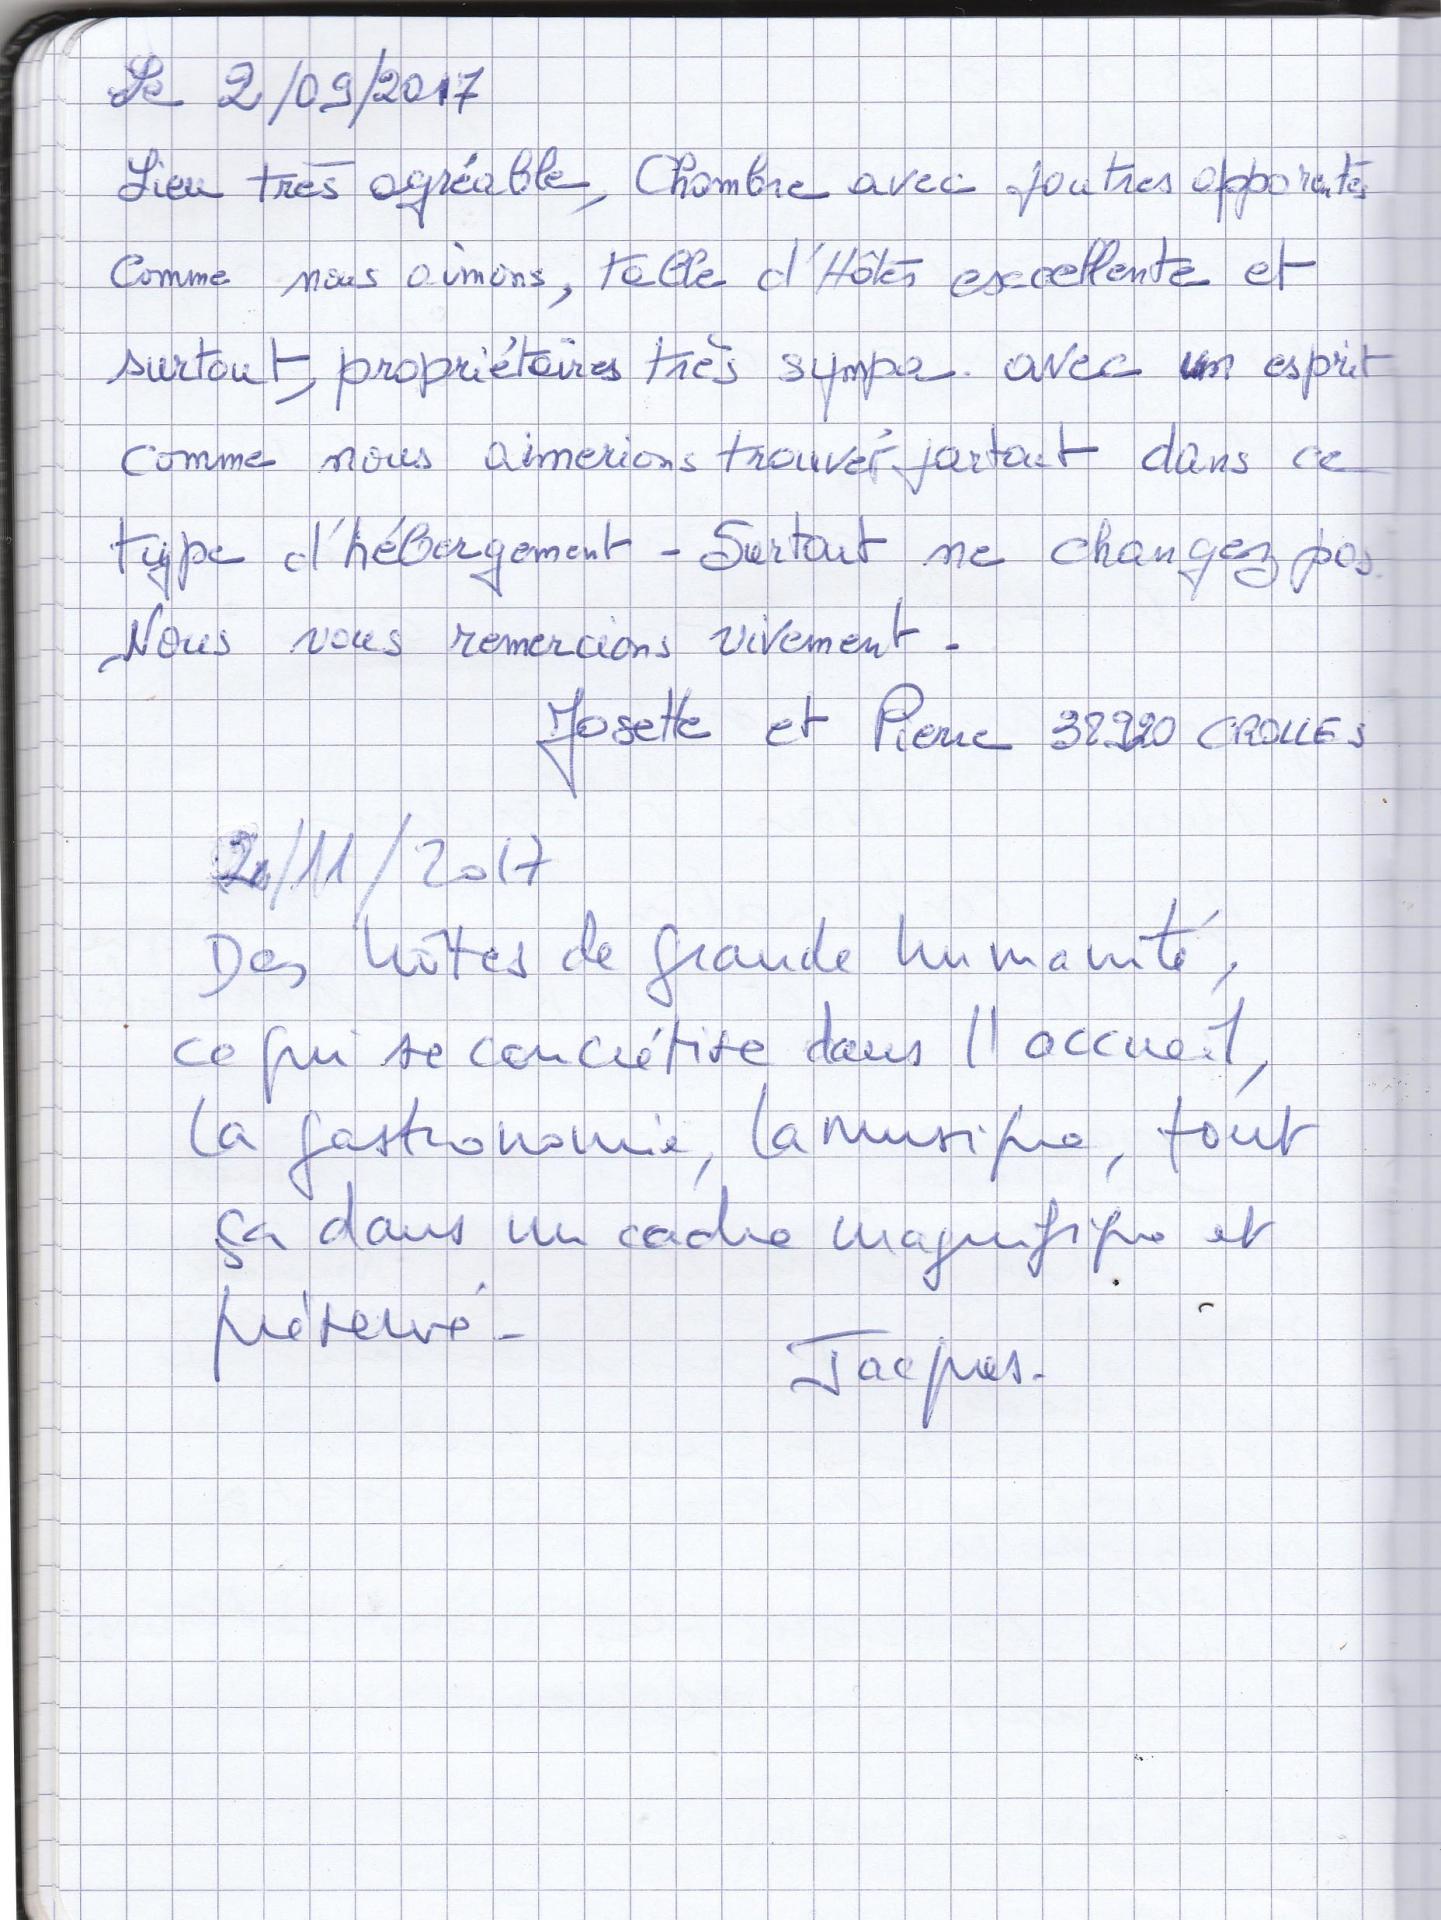 Le 2/09/2017
Lieu très agréable, Chambre avec poutres apparentes
Comme nous aimons, table d'Hôtes excellente et
surtout, propriétaires très sympa. avec un esprit
comme nous aimerions trouver partout dans ce
type d'hébergement - Surtout ne changez pas.
Nous vous remercions vivement -
Josette et Pierre 38920 CROLLES
/11/2017
Des hôtes de grande humanité,
ce qui se concrétise dans l'accueil,
la gastronomie, la musique, tout
ça dans un cadre magnifique et
préservé -
Jacques.